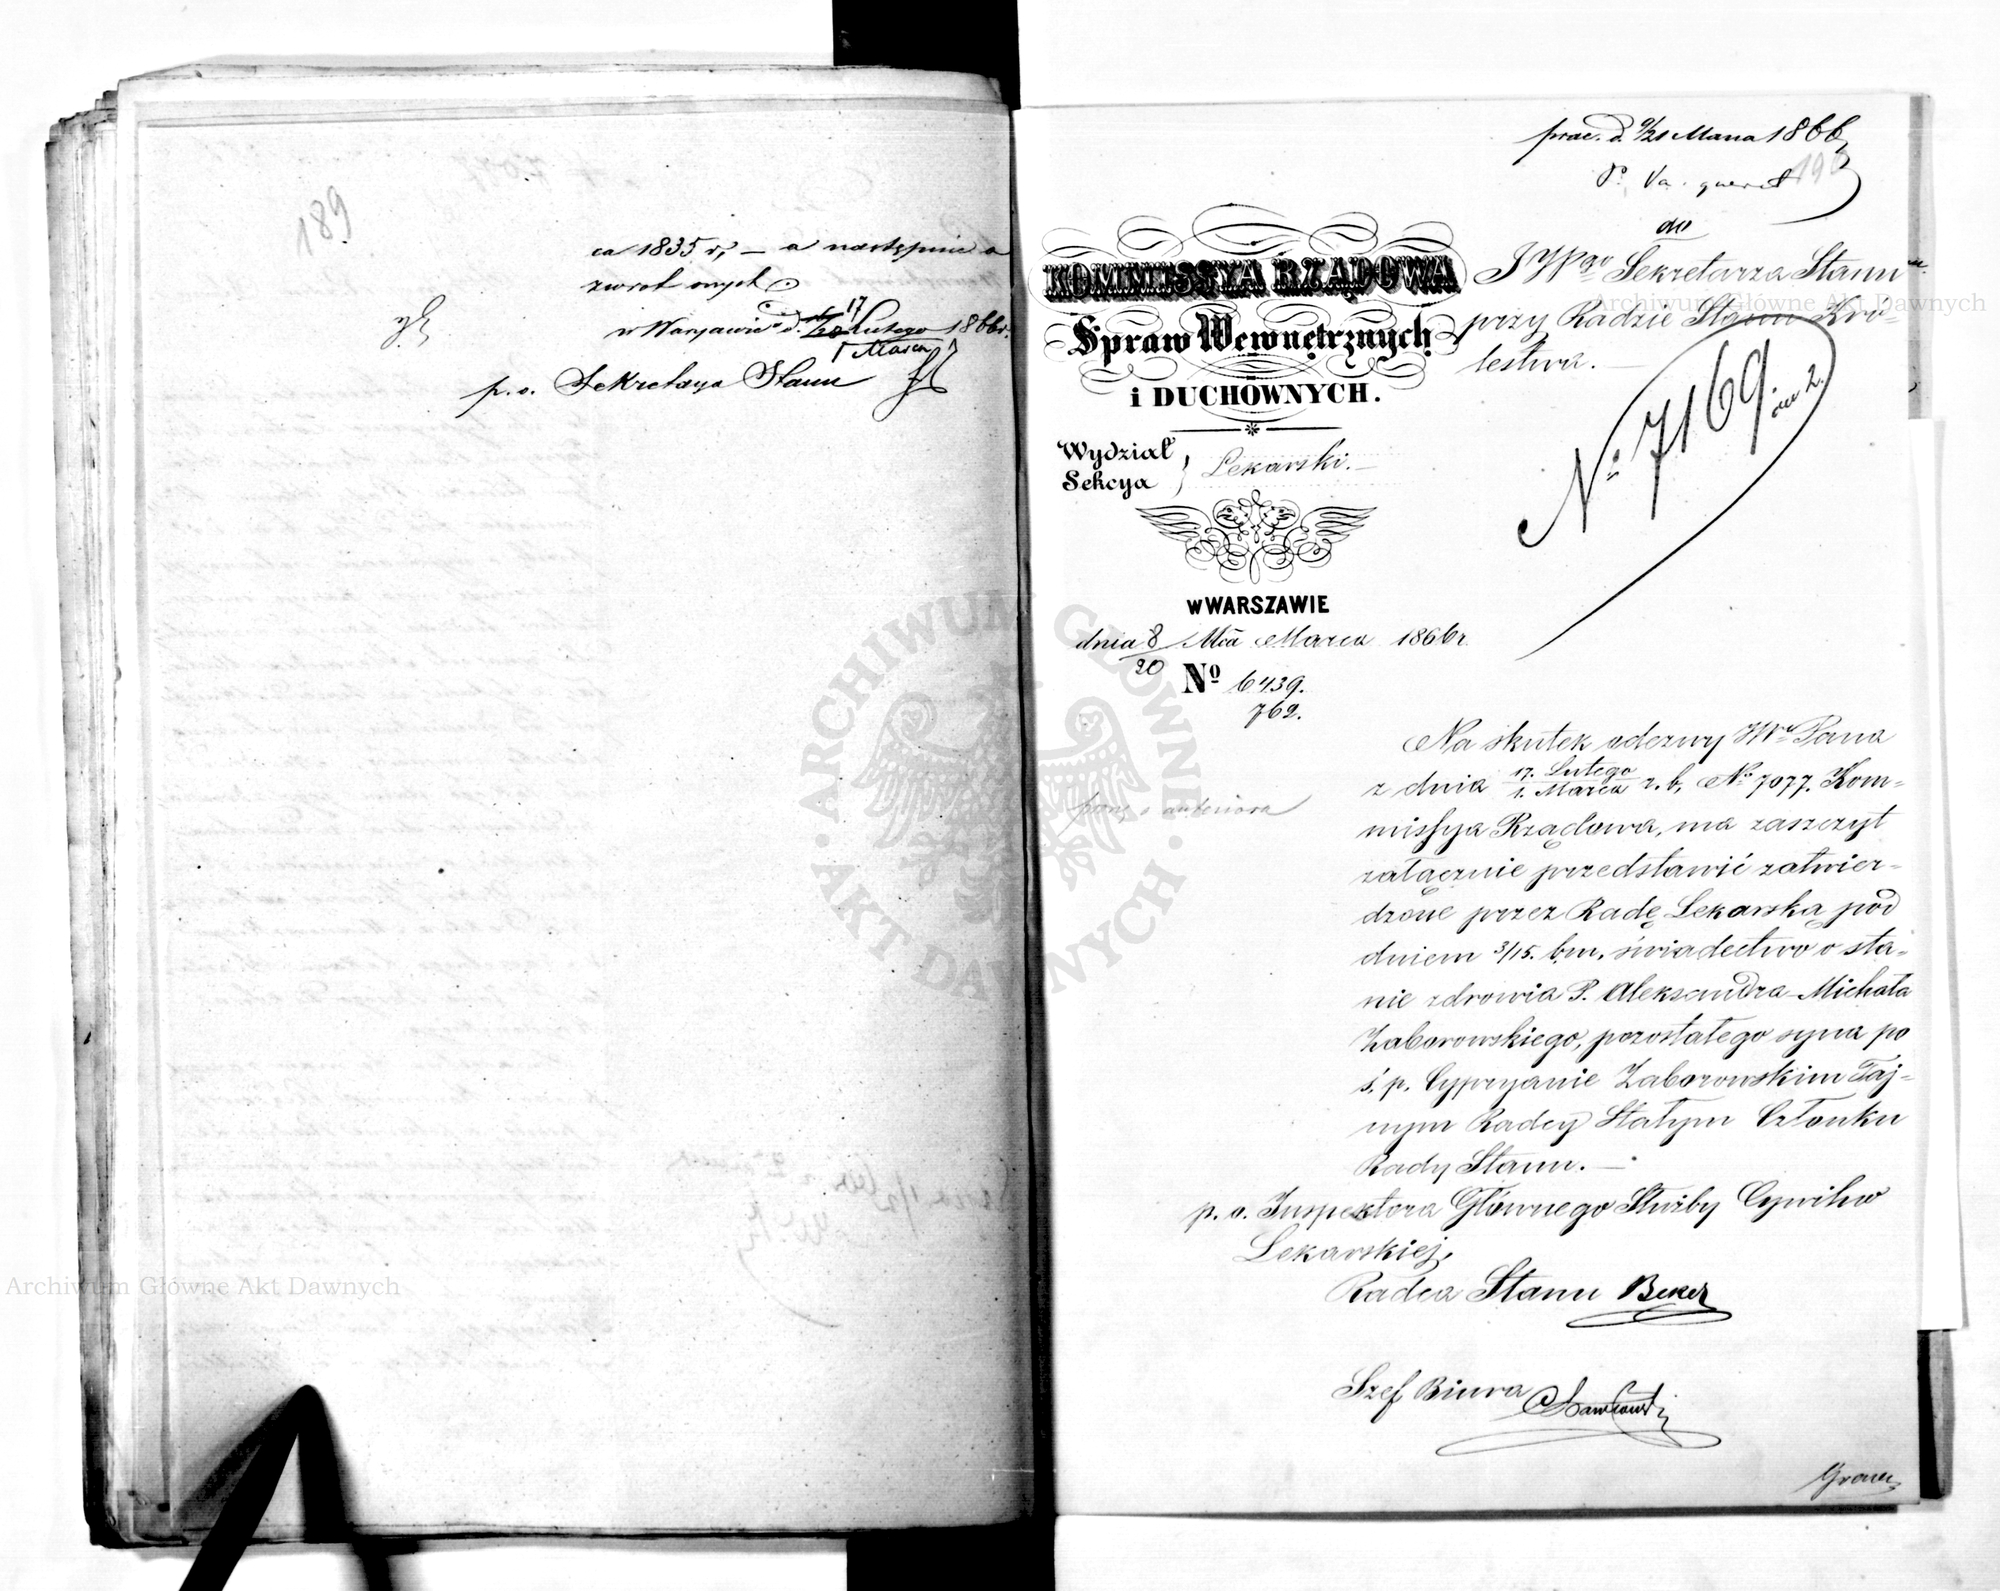 189
ca 1835 r, – a następnie o
zwrot onych
w Warszawie d. 17 Lutego 1866 r.
1 Marca
p. o. Sekretarza Stanu
prae. d. 9/21 Marca 1866
190
do
JWgo Sekretarza Stanu
przy Radzie Stanu Kró-
lestwa. –
No 7169.
KOMMISSYA RZĄDOWA
Spraw Wewnętrznych
i DUCHOWNYCH.
Wydział
Sekcya
Lekarski. –
w WARSZAWIE
dnia 8/20 Mca Marca 1866 r.
No 6439.
762.
Na skutek odezwy JWo Pana
z dnia 17. Lutego / 1. Marca r. b. No 7077. Kom-
missya Rządowa, ma zaszczyt
załącznie przedstawić zatwier-
dzone przez Radę Lekarską pod
dniem 3/15. b.m. świadectwo o sta-
nie zdrowia P. Aleksandra-Michała
Zaborowskiego, pozostałego syna po
ś. p. Cypryanie Zaborowskim Taj-
nym Radcy Stałym Członku
Rady Stanu. –
p. o. Inspektora Głównego Służby Cywilno
Lekarskiej,
Radca Stanu
Szef Biura
Archiwum Główne Akt Dawnych
Archiwum Główne Akt Dawnych
ARCHIWUM GŁÓWNE AKT DAWNYCH